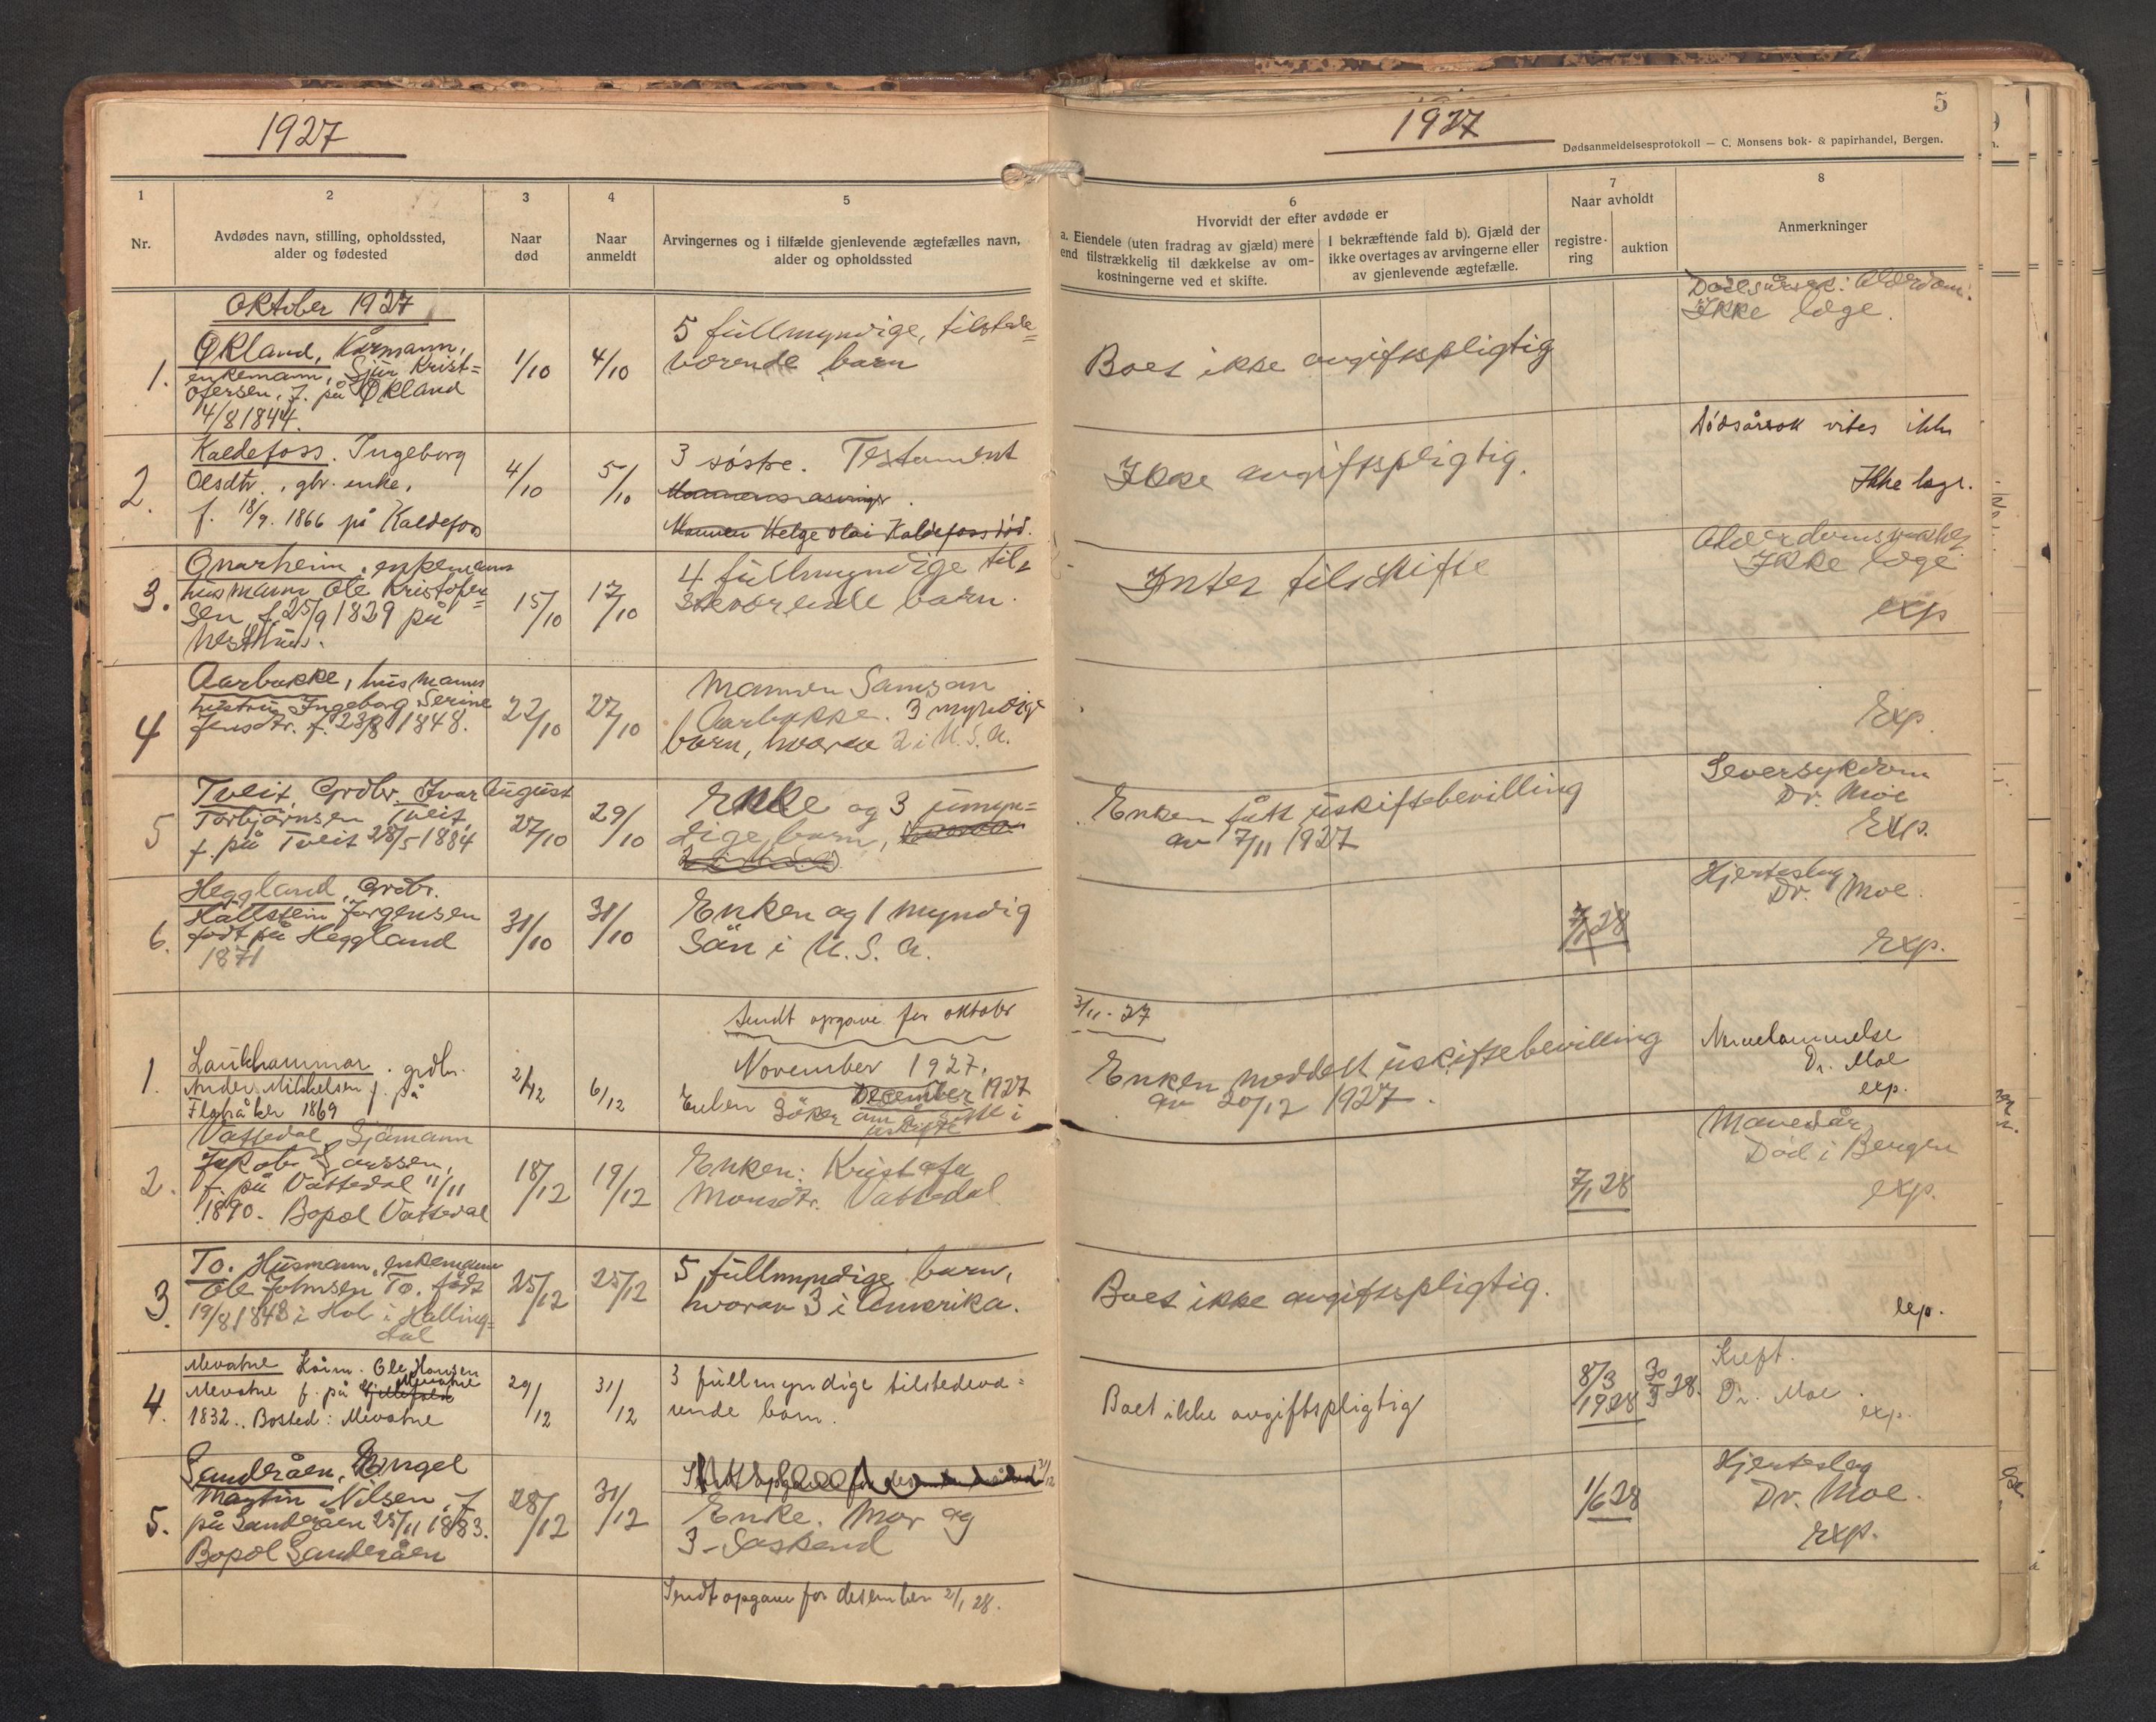 1927
1 2 3 4 5
Nr.
Avdødes navn, stilling, opholdssted,
alder og fødested
Naar
død
Naar
anmeldt
Arvingernes og i tilfælde gjenlevende ægtefælles navn,
alder og opholdssted
Oktober 1927
1.
Økland, Kårmann,
enkemann, Sjur Krist=
ofersen, f. på Økland
4/8 1844.
1/10
4/10
5 fullmyndige, tilstede=
værende barn
2.
Kaldefoss. Ingeborg
Olsdtr., gbr. enke,
f. 18/9. 1866 på Kaldefoss
4/10
5/10
3 søstre. Testament
Mannen Helge Olai Kaldefoss død.
3.
Onarheim, enkemann
husmann Ole Kristofer=
sen, f. 25/9 1839 på
15/10
17/10
4 fullmyndige til=
steværende barn.
4
Aarbakke, husmanns
hustru Ingeborg Serine
Jensdtr. f. 23/8 1848.
22/10
27/10
Mannen Samson
Aarbakke. 3 myndige
barn, hvorav 2 i U.S.A.
5
Tveit, Grdbr. Ivar August
Torbjørnsen Tveit
f. på Tveit 28/5 1884
27/10
29/10
Enke og 3 umyn=
dige barn,
6.
Heggland, Grdbr.
Hallstein Jørgensen
født på Heggland
1871
31/10
31/10
Enken og 1 myndig
Sön i U. S. A.
Sendt opgave for oktober
November 1927.
December 1927
1.
Laukhammar. grdbr.
Anders Mikkelsen f. på
Flatråker 1869
2/12
6/12
Enken Söker om å sitte i
uskifte
2.
Vattedal, Sjömann
Jakob Larssen,
f. på Vattedal 11/11
1890. Bopel Vattedal
18/12
19/12
Enken: Kristofa
Monsdtr. Vattedal
3.
To. Husmann, enkemann
Ole Johnsen To. født
19/8 1843 i Hol i Halling=
dal
25/12
25/12
5 fullmyndige barn,
hvorav 3 i Amerika.
4.
Mevatne Kårm. Ole Hansen
Mevatne f. på Mevatne
1832.. Bosted: Mevatne
29/12
31/12
3 fullmyndige tilstedevæ=
rende barn.
5.
Sanderåen, Engel
Martin Nilsen, f.
på Sanderåen 25/11 1883.
Bopel Sanderåen
28/12
31/12
Enke. Mor og
3 Søskend
Sendt opgave for desember 2/1 28.
1927
5
Dødsanmeldelsesprotokoll — C. Monsens bok- & papirhandel, Bergen.
6
Hvorvidt der efter avdøde er
a. Eiendele (uten fradrag av gjæld) mere
end tilstrækkelig til dækkelse av om-
kostningerne ved et skifte.
I bekræftende fald b). Gjæld der
ikke overtages av arvingerne eller
av gjenlevende ægtefælle.
7
Naar avholdt
registre-
ring
auktion
8
Anmerkninger
Dødsårsak: Alderdom.
Ikke læge.
Boet ikke avgiftspligtig
Dødsårsak vites ikke
Ikke læge.
Ikke avgiftspligtig.
Ikke læge
exp
Intet tilskifte
Exp.
Enken fått uskiftebevilling
av 7/11 1927
Leversykdom
Dr. Moe
Exp.
7/1 28
Hjerteslag
Dr. Moe.
Exp.
3/11 - 27
Enken meddelt uskiftebevilling
av 20/12 1927.
Nervelammelse
Dr. Moe
exp.
7/1 28
Mavesår
Död i Bergen
exp.
Boet ikke avgiftspligtig.
exp.
Boet ikke avgiftspligtig
8/3
1928
30/3 28.
Kreft.
Dr. Moe.
exp.
1/6 28
Hjerteslag
Dr. Moe.
exp.